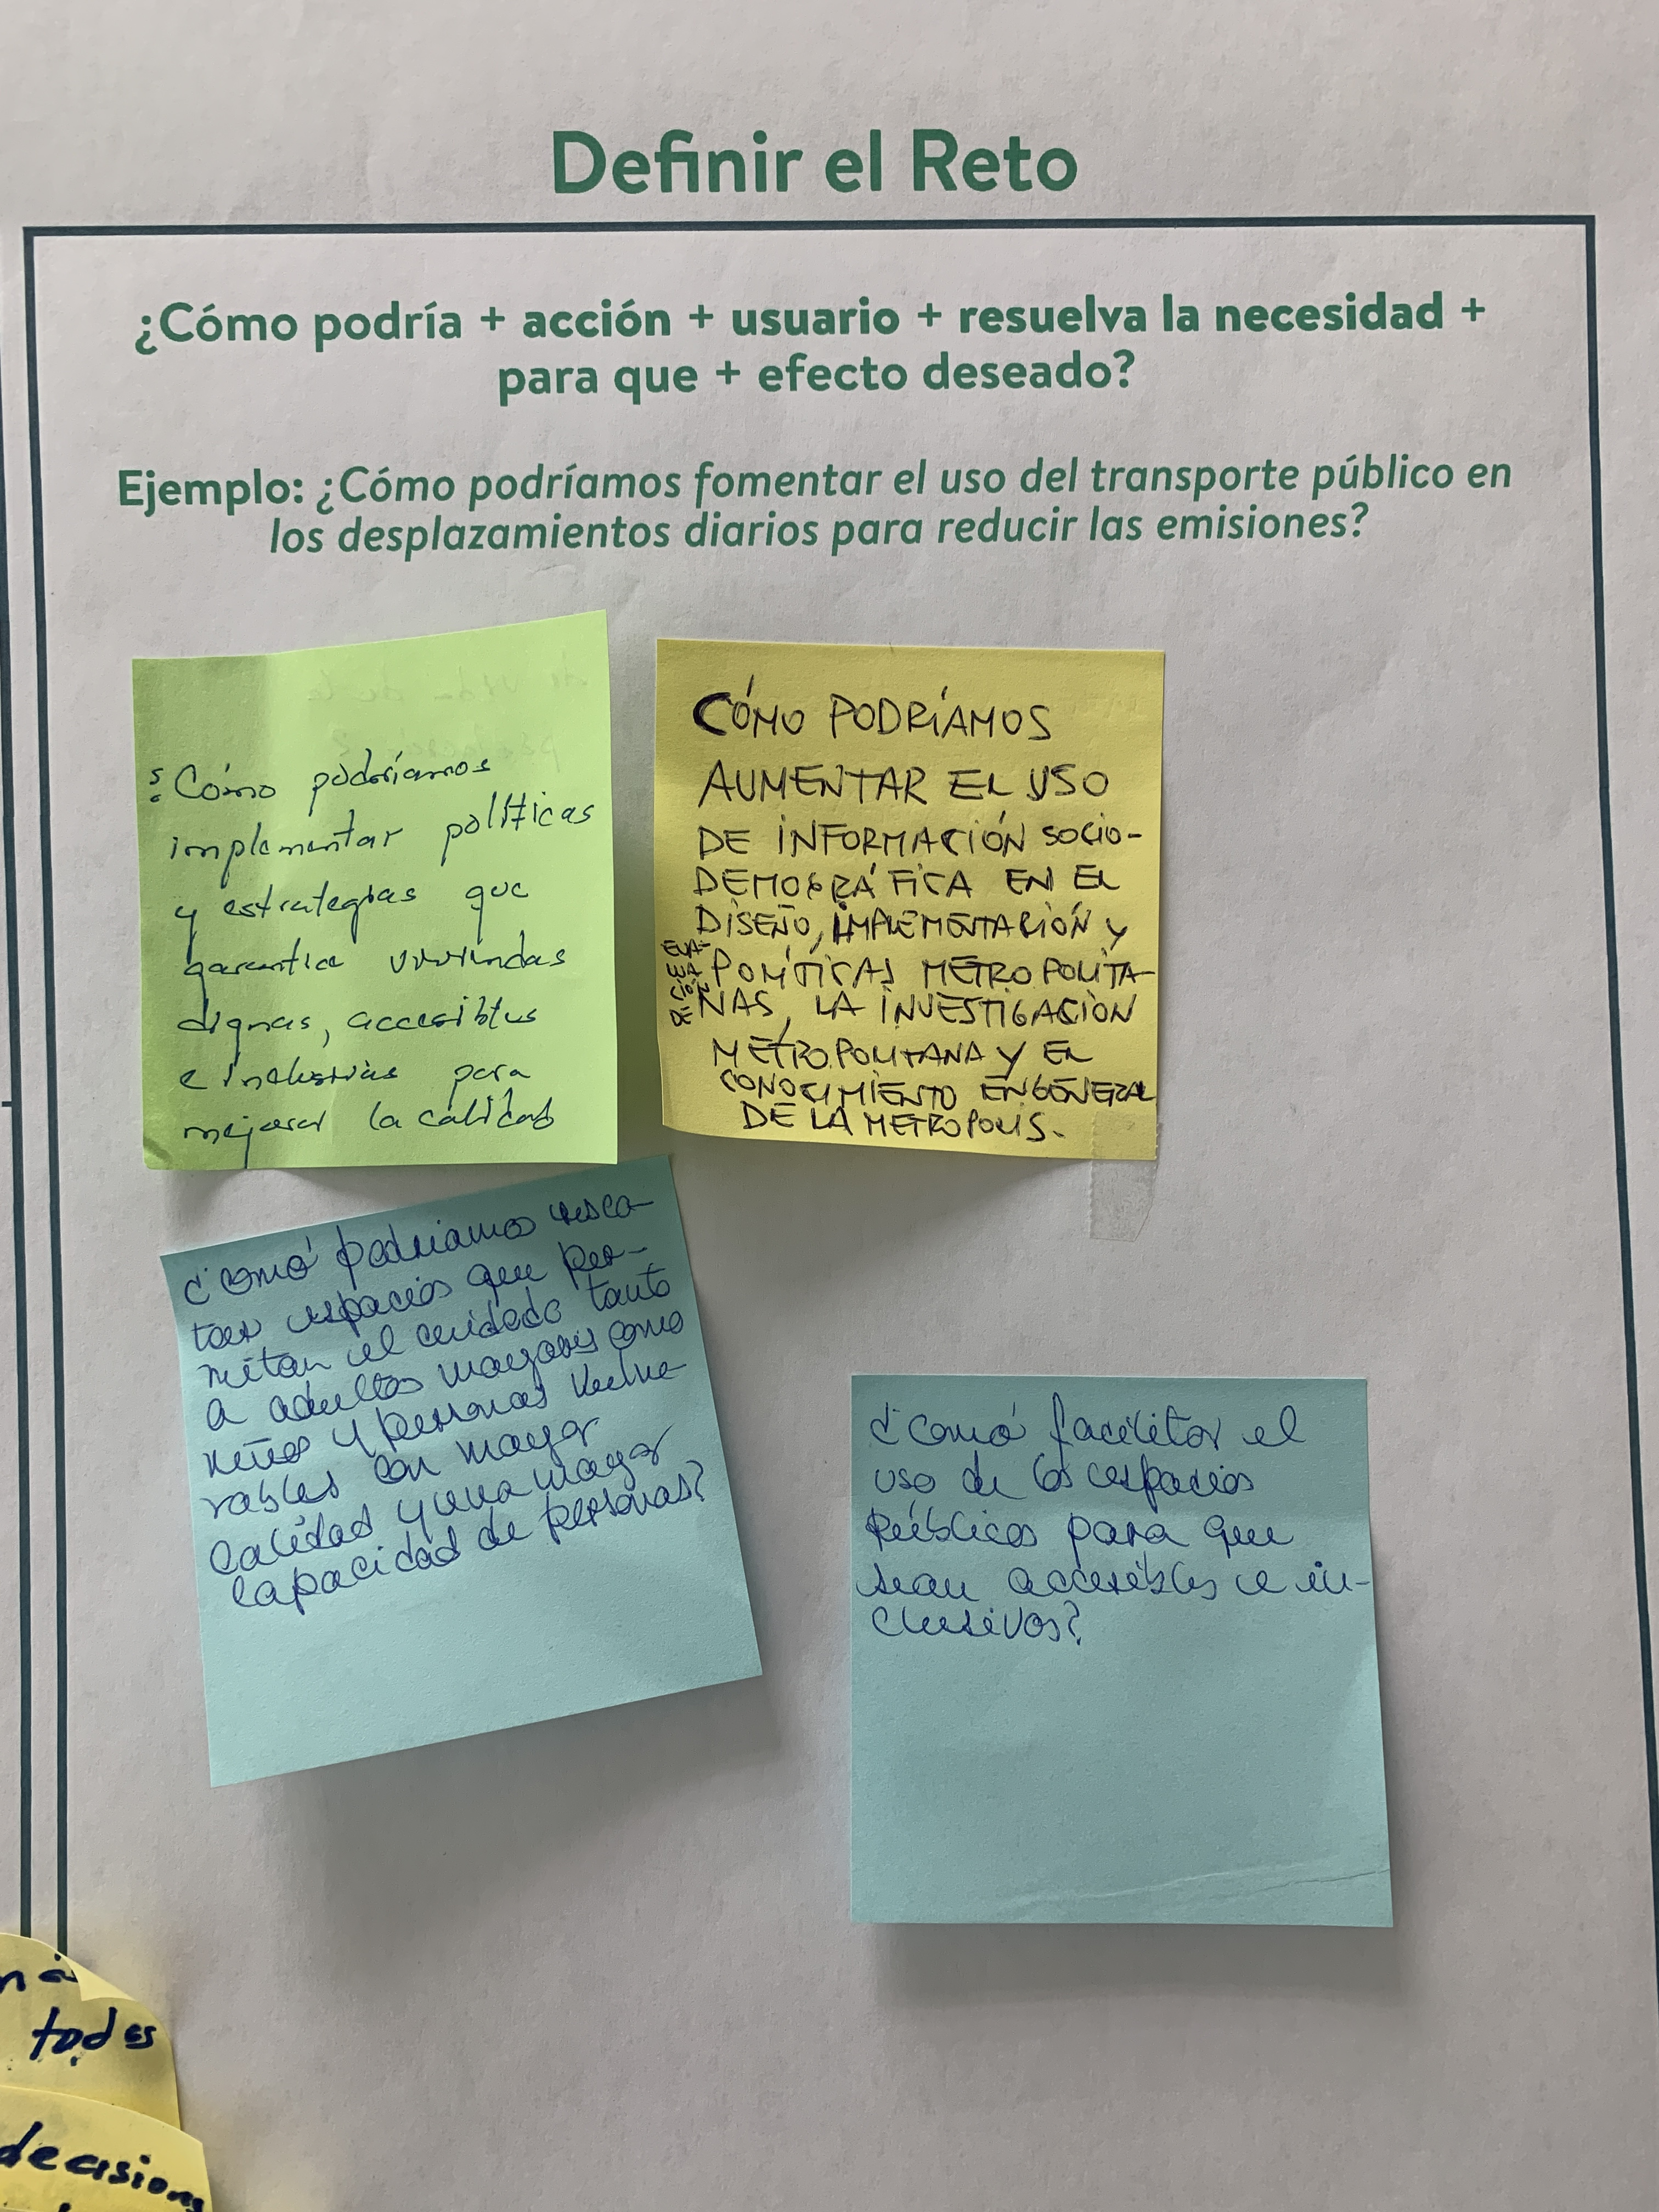 Definir el Reto
¿Cómo podría + acción + usuario + resuelva la necesidad +
para que + efecto deseado?
Ejemplo: ¿Cómo podríamos fomentar el uso del transporte público en
los desplazamientos diarios para reducir las emisiones?
¿Cómo podríamos
implementar políticas
y estrategias que
garantice viviendas
dignas, accesibles
e inclusivas para
mejorar la calidad
CÓMO PODRÍAMOS
AUMENTAR EL USO
DE INFORMACIÓN SOCIO-
DEMOGRÁFICA EN EL
DISEÑO, IMPLEMENTACIÓN Y
EVA-
LUA
CIÓN
DE
POLÍTICAS METROPOLITA-
NAS, LA INVESTIGACIÓN
METROPOLITANA Y EL
CONOCIMIENTO EN GENERAL
DE LA METROPOLIS.
¿comó podriamos resca-
tar espacios que per-
mitan el cuidado tanto
a adultos mayores como
niños y personas vulne-
rables con mayor
calidad y una mayor
capacidad de personas?
¿comó facilitar el
uso de los espacios
públicos para que
sean accesibles e in-
clusivos?
todos
decisiones